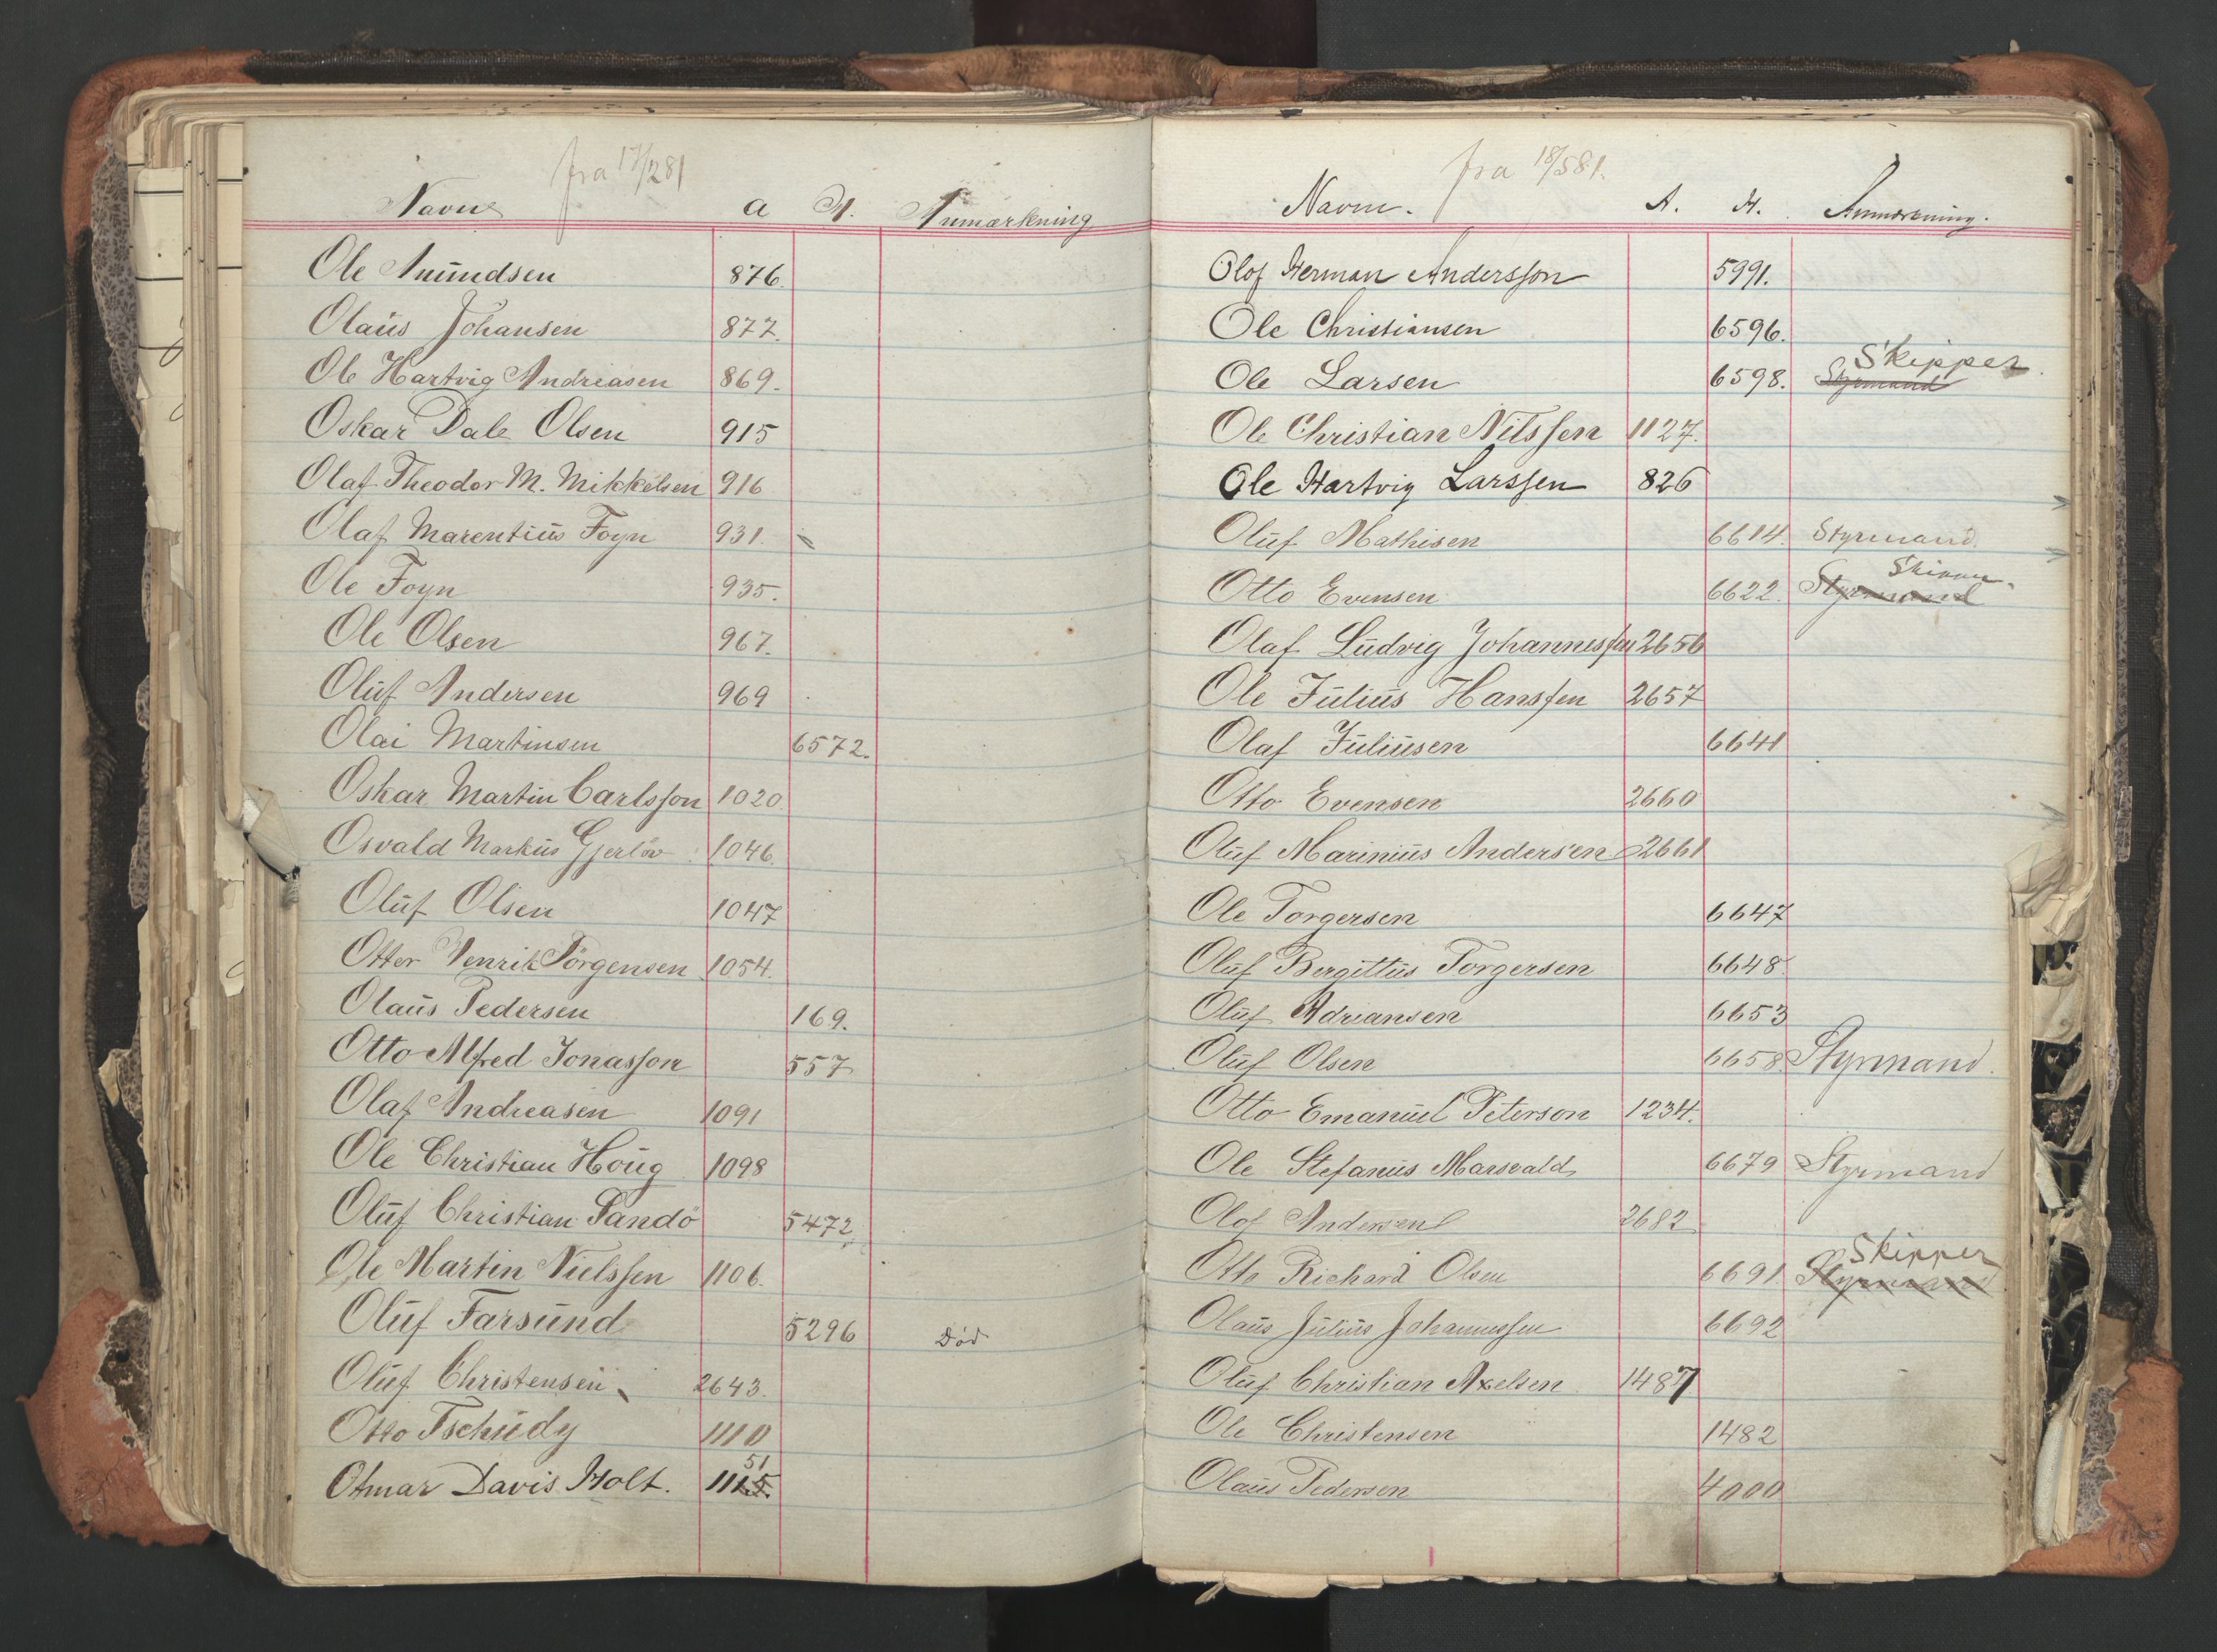 fra 17/281
Navne a H. Anmærkning
Ole Amundsen 876.
Olaus Johansen 877.
Ole Hartvig Andreasen 869.
Oskar Dale Olsen 915
Olaf Theodor M. Mikkelsen 916
Olaf Marentius Foyn 931.
Ole Foyn 935.
Ole Olsen 967.
Oluf Andersen 969
Olai Martinsen 6572.
Oskar Martin Carlsson 1020.
Osvald Markus Gjerløv 1046.
Oluf Olsen 1047
Otter Henrik Jörgensen 1054.
Olaus Pedersen 169.
Otto Alfred Jonasson 557
Olaf Andreasen 1091
Ole Christian Houg 1098
Oluf Christian Sandö 5472
Ole Martin Nielssen 1106.
Oluf Farsund 5296 Död
Oluf Christensen 2643.
Otto Tschudy 1110
51
Otmar Davis Holt. 1115.
fra 18/581.
Navne. A. H. Anmærkning.
Olof Herman Andersson 5991.
Ole Christiansen 6596.
Skipper
Ole Larsen 6598. Styrmand
Ole Christian Nilssen 1127.
Ole Hartvig Larssen 826
Oluf Mathisen 6614. Styrmand.
Skipper
Otto Evensen 6622. Styrmand
Olaf Ludvig Johannessen 2656
Ole Julius Hanssen 2657
Olaf Juliusen 6641
Otto Evensen 2660
Oluf Marinius Andersen 2661
Ole Torgersen 6647
Oluf Bergittus Torgersen 6648.
Oluf Adriansen 6653
Oluf Olsen 6658. Styrmand.
Otto Emanuel Peterson 1234.
Ole Stefanus Marsvald 6679 Styrmand
Olof Andersen 2682
Skipper
Otto Richard Olsen 6691 Styrmand
Olaus Julius Johannessen 6692
Oluf Christian Axelsen 1487
Ole Christensen 1482
Olaus Pedersen 4000